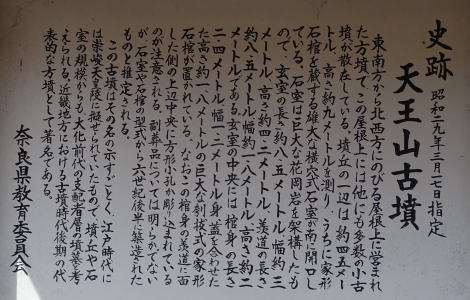 史跡 天王山古墳 昭和二九年三月七日指定
東南方から北西方にのびる屋根上に営まれ
た方墳で、この屋根上には他にも多数の小古
墳が散在している。墳丘の一辺は約四五メー
トル、高さ約九メートルを測り、うちに家形
石棺を蔵する雄大な横穴式石室が南に開口し
ている。石室は巨大な花崗岩を架構したも
ので、玄室の長さ約八・五メートル、幅約三
メートル、高さ約四・二メートル、羨道の長さ
約八・五メートル、幅約一・八メートル、高さ約二
メートルである。玄室の中央には棺身の長さ
二・四メートル、幅一・七メートル、身蓋を合わせ
た高さ約一・八メートルの巨大な刳抜式の家形
石棺が置かれている。なおこの棺身の羨道に面
した側の上辺中央に方形小孔が彫り込まれている
のが注意される。副葬品については明らかでない
が、石室や石棺の型式から六世紀後半に築造された
ものと推定される。
この古墳はその名の示すごとく、江戸時代に
は崇峻天皇陵に擬せられていたもので、墳丘や石
室の規模からも大化前代の支配者層の墳墓と考
えられる。近畿地方における古墳時代後期の代
表的な方墳として著名である。
奈良県教育委員会